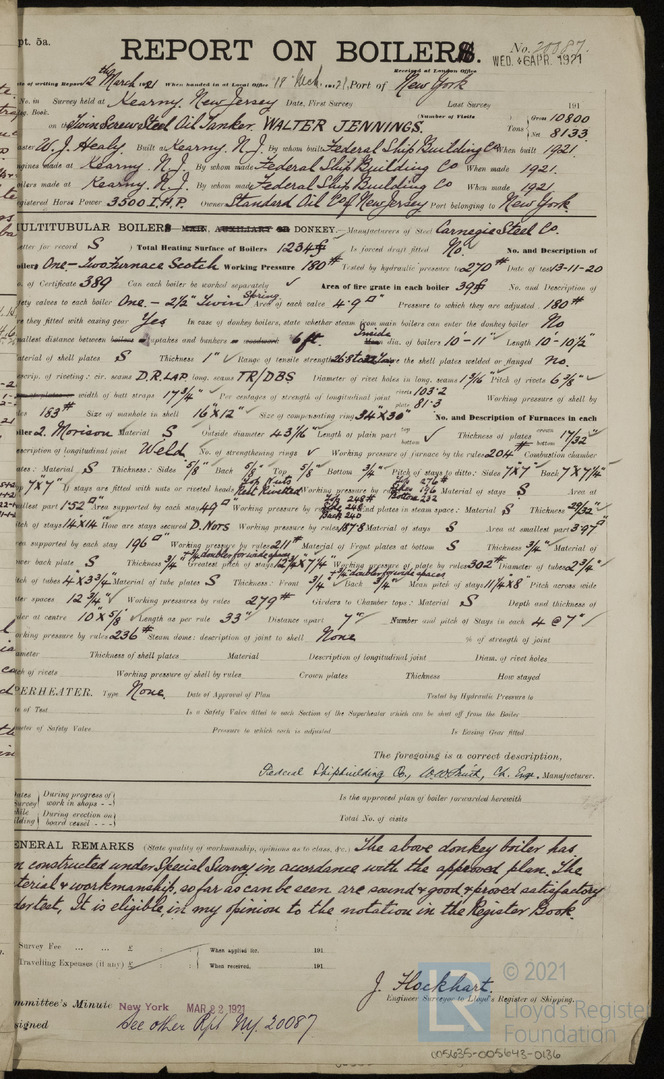 pt. 5a.
REPORT ON BOILERS.
No. 20087.
Received at London Office
WED. 6 APR. 1921
of writing Report 12th March 1921 When handed in at Local Office 18 Mch. 1921 Port of New York
No. in Survey held at Kearny, New Jersey Date, First Survey Last Survey 191
Book. (Number of Visits
on the Twin Screw Steel Oil Tanker. WALTER JENNINGS. Tons Gross 10800 Net 8133
W. J. Healy. Built at Kearny. N. J. By whom built Federal Ship Building Co When built 1921.
gines made at Kearny. N. J. By whom made Federal Ship Building Co When made 1921.
lers made at Kearny. N. J. By whom made Federal Ship Building Co When made 1921
gistered Horse Power 3500 I.H.P. Owner Standard Oil Co of New Jersey Port belonging to New York.
ULTITUBULAR BOILERS MAIN, AUXILIARY OR DONKEY. Manufacturers of Steel Carnegie Steel Co.
etter for record S Total Heating Surface of Boilers 1234 Is forced draft fitted No. No. and Description of
oilers One - Two Furnace Scotch Working Pressure 180# Tested by hydraulic pressure to 270# Date of test 13-11-20
o. of Certificate 389 Can each boiler be worked separately Area of fire grate in each boiler 39 No. and Description of
ety valves to each boiler One. - 2½" Twin Spring Area of each valve 4.9 Pressure to which they are adjusted 180#
re they fitted with easing gear Yes In case of donkey boilers, state whether steam from main boilers can enter the donkey boiler No
allest distance between boilers or uptakes and bunkers or woodwork 6 ft Inside dia. of boilers 10'-11" Length 10'-10½"
aterial of shell plates S Thickness 1" Range of tensile strength Are the shell plates welded or flanged No.
scrip. of riveting: cir. seams D.R. LAP. long. seams TR/DBS Diameter of rivet holes in long. seams 1 1/16 Pitch of rivets 6 3/8"
width of butt straps 17¾" Per centages of strength of longitudinal joint rivets 103.2 plate 81.3 Working pressure of shell by
les 183# Size of manhole in shell 16"X12" Size of compensating ring 34"X30" No. and Description of Furnaces in each
iler 2. Morison Material S Outside diameter 43 3/16" Length of plain part top bottom Thickness of plates crown bottom 17/32"
scription of longitudinal joint Weld. No. of strengthening rings Working pressure of furnace by the rules 204# Combustion chamber
ates: Material S Thickness: Sides 5/8" Back 5/8" Top 5/8" Bottom 3/4" Pitch of stays to ditto: Sides 7"X7" Back 7"X7¼"
p 7"X7" If stays are fitted with nuts or riveted heads Top Nuts Rest Rivetted Working pressure by rules Material of stays S Area at
allest part 1.52 Area supported by each stay 49 Working pressure by rules End plates in steam space: Material S Thickness 29/32"
tch of stays 14X14 How are stays secured D. NUTS Working pressure by rules 187.8 Material of stays S Area at smallest part 3.97
ea supported by each stay 196 Working pressure by rules 211# Material of Front plates at bottom S Thickness ¾" Material of
wer back plate S Thickness ¾" Greatest pitch of stays 12¾"X7¼" Working pressure of plate by rules 302# Diameter of tubes 2¾"
tch of tubes 4"X3¾" Material of tube plates S Thickness: Front ¾" Back ¾" Mean pitch of stays 11¼"X8" Pitch across wide
ter spaces 12¾" Working pressures by rules 279# Girders to Chamber tops: Material S Depth and thickness of
der at centre 10"X 5/8" Length as per rule 33" Distance apart 7" Number and pitch of Stays in each 4 @ 7"
orking pressure by rules 236# Steam dome: description of joint to shell None % of strength of joint
ameter Thickness of shell plates Material Description of longitudinal joint Diam. of rivet holes
ch of rivets Working pressure of shell by rules Crown plates Thickness How stayed
PERHEATER. Type None. Date of Approval of Plan Tested by Hydraulic Pressure to
te of Test Is a Safety Valve fitted to each Section of the Superheater which can be shut off from the Boiler
meter of Safety Valve Pressure to which each is adjusted Is Easing Gear fitted
The foregoing is a correct description,
Federal Shipbuilding Co., W W Smith, Ch. Engr. Manufacturer.
Dates Survey while ilding During progress of work in shops - - Is the approved plan of boiler forwarded herewith
During erection on board vessel - - - Total No. of visits
ENERAL REMARKS (State quality of workmanship, opinions as to class, &c. The above donkey boiler has
n constructed under Special Survey in accordance with the approved plan. The
terial & workmanship, so far as can be seen are sound & good & proved satisfactory
der test. It is eligible, in my opinion to the notation in the Register Book.
Survey Fee ... ... £ : : When applied for. 191
Travelling Expenses (if any) £ : : When received. 191
J. Hockhart.
Engineer Surveyor to Lloyd's Register of Shipping.
mmittee's Minute New York MAR 22 1921
signed See other Rpt Ny. 20087
LR © 2021
Lloyd's Register
Foundation
005635-005643-0136